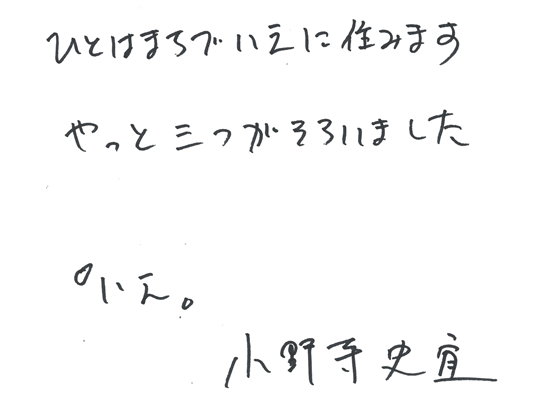 ひとはまちでいえに住みます
やっと三つがそろいました
。いえ。
小野寺史宜